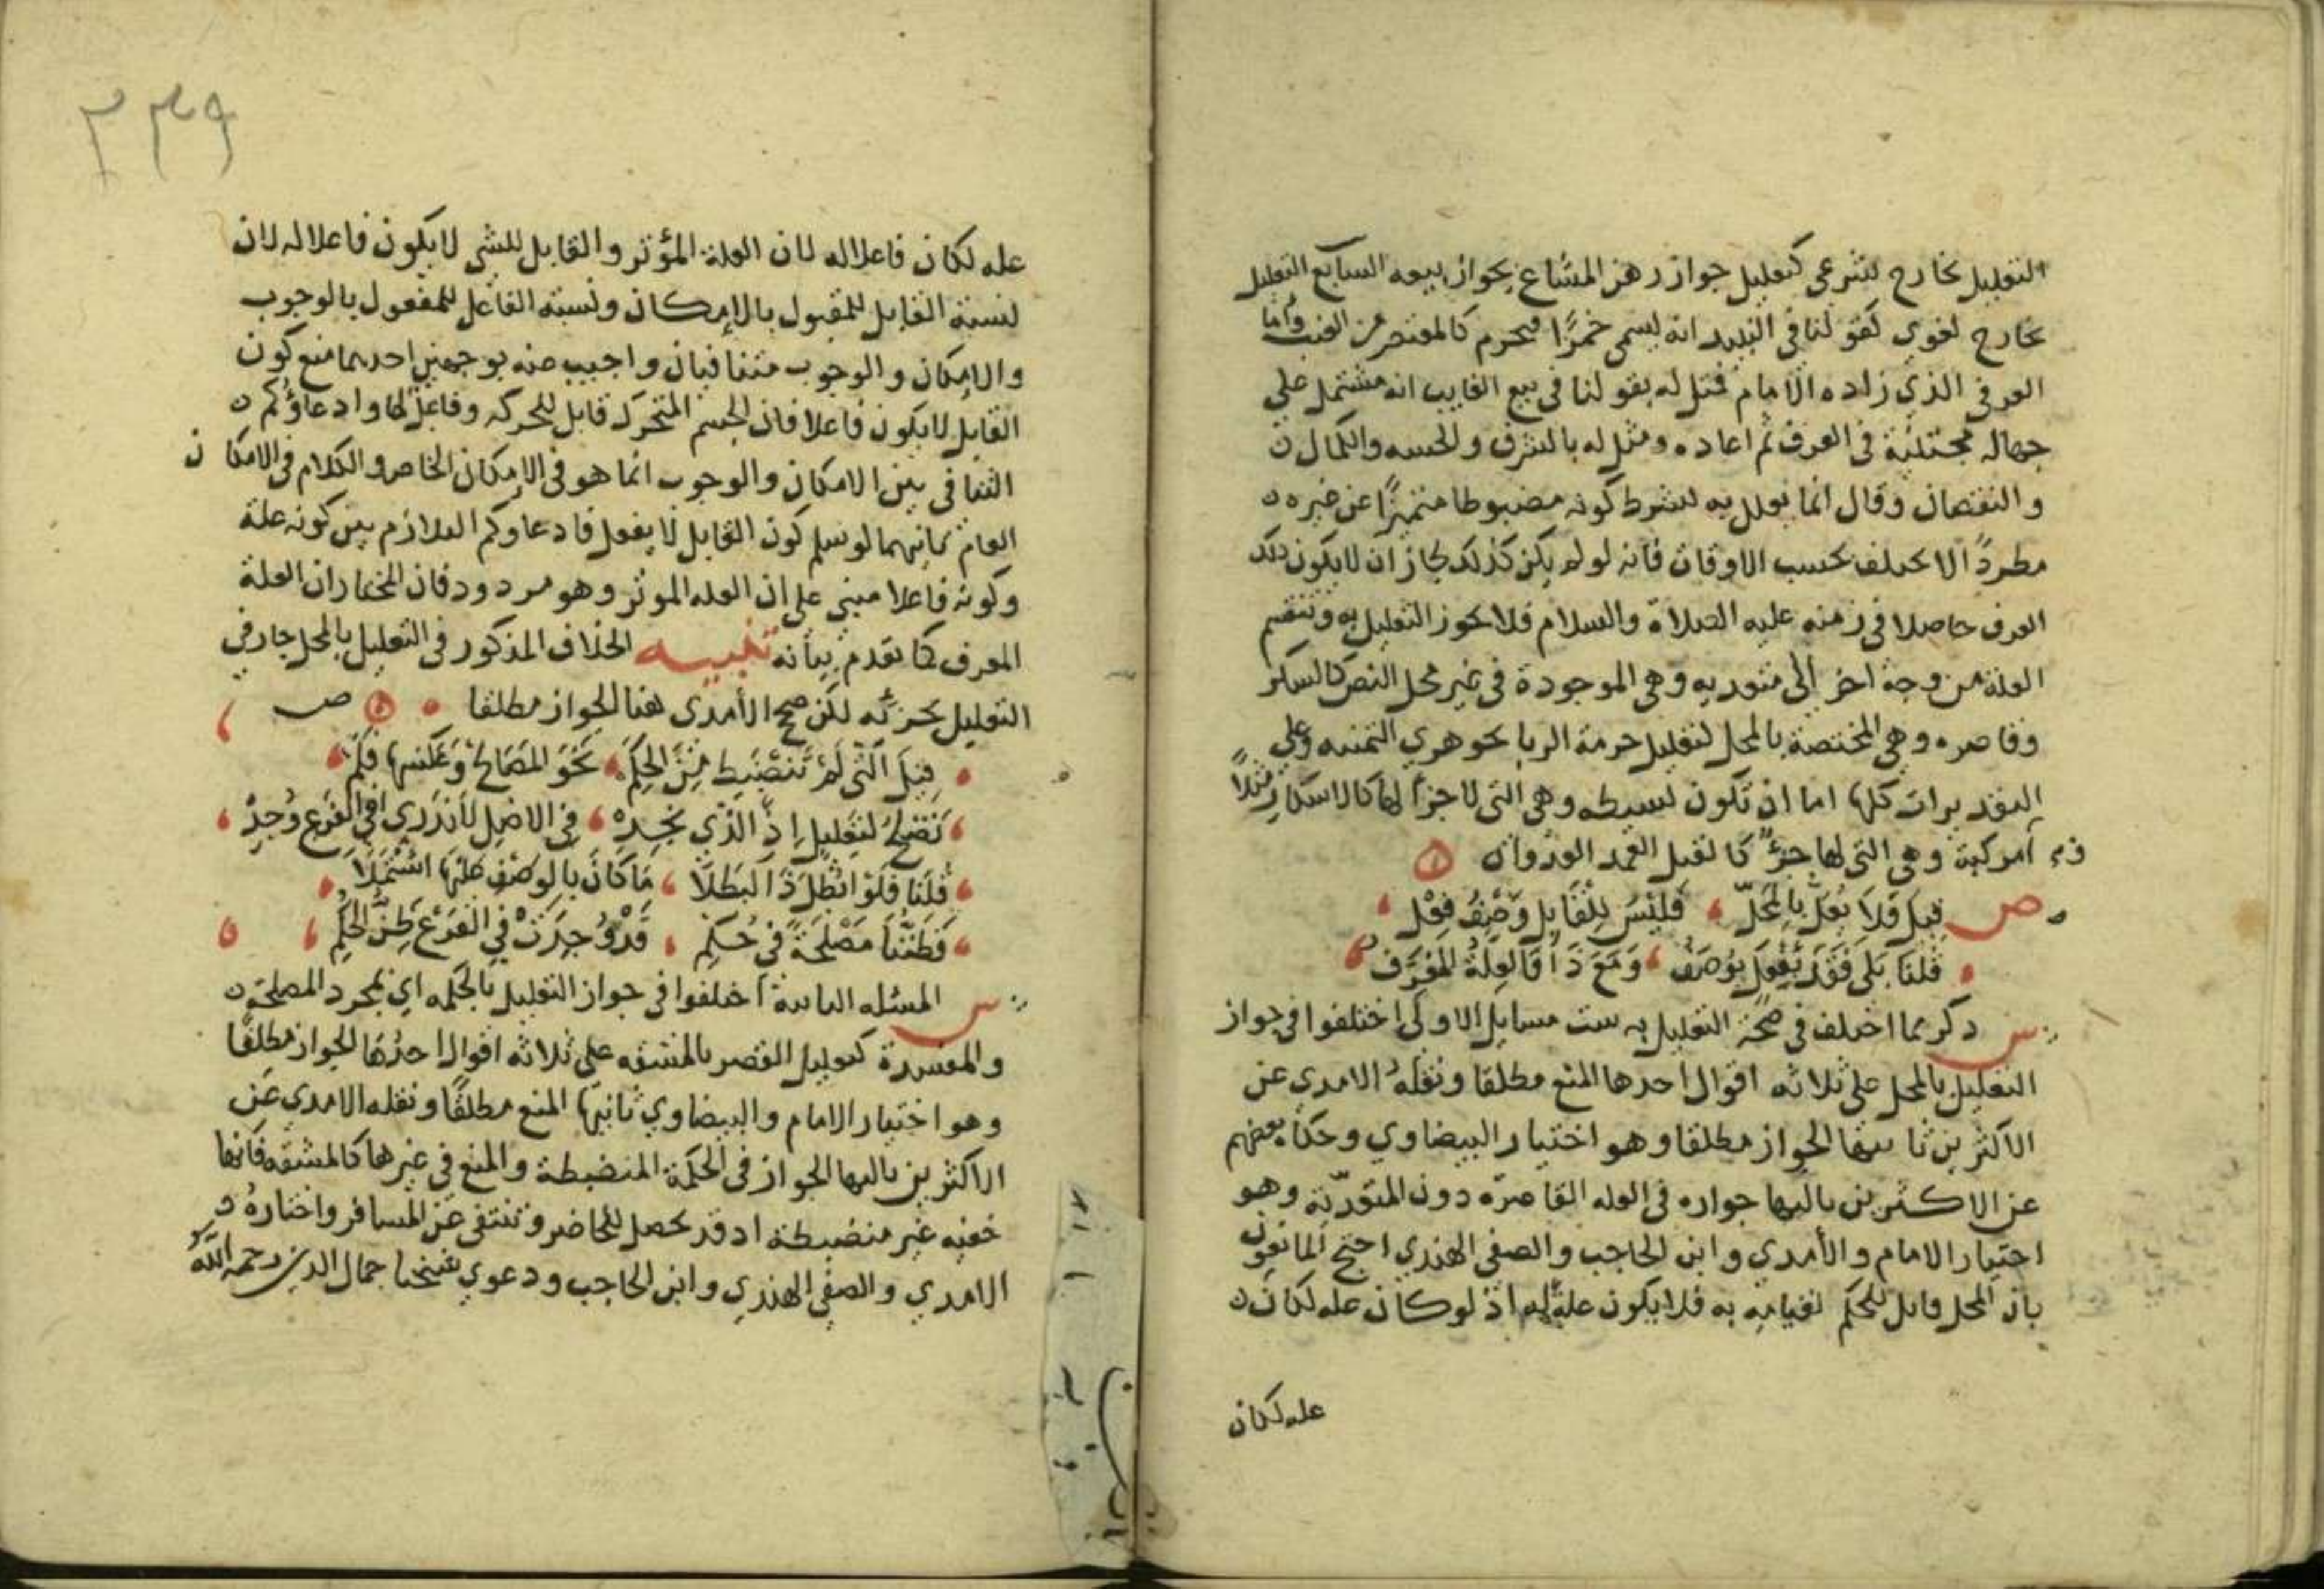 التعليل بخارج شرعي كتعليل جواز رهن المشاع بجواز بيعه السابع التعليل
بخارج لغوي كقولنا في النبيذ انه يسمى خمرًا فيحرم كالمعتصر من العنب وأما
العرفي الذي زاده الامام فمثل له بقولنا في بيع الغايب انه مشتمل على
جهالة مجتنبة في العرف ثم اعاده ومثل له بالشرف والخسه والكمال
والنقصان وقال انما يعلل به بشرط كونه مضبوطا متميزًا عن غيره
مطردًا لا يختلف بحسب الاوقات فانه لو لم يكن كذلك لجاز ان لا يكون ذلك
العرف حاصلا في زمنه عليه الصلاة والسلام فلا يجوز التعليل به وتنقسم
العلة من وجه اخر الى متعديه وهي الموجودة في غير محل النص كالسكر
وقاصره وهي المختصة بالمحل كتعليل حرمة الربا بجوهري الثمنيه وعلى
التقديرات كلها اما ان تكون بسيطه وهي التي لا جزأ لها كالاسكار مثلاً
او مركبة وهي التي لها جزءٌ كالقتل العمد العدوان
ص قيل فلا يعل بالمحلّ فليس للقابل وصف فعل
قلنا بلى فقد يفعل بوصف ومع ذا فالعلة المعرف
س ذكر مما اختلف في صحة التعليل به ست مسايل الاولى اختلفوا في جواز
التعليل بالمحل على ثلاثه اقوال احدها المنع مطلقا ونقله الامدي عن
الاكثرين ثانيها الجواز مطلقا وهو اختيار البيضاوي وحكاه بعضهم
عن الاكثرين ثالثها جوازه في العله القاصرة دون المتعدّية وهو
اختيار الامام والأمدي وابن الحاجب والصفي الهندي احتج المانعون
بان المحل قابل للحكم لقيامه به فلا يكون علة له اذ لو كان عله لكان
عله لكان
٢٣٩
عله لكان فاعلا له لان العلة المؤثر والقابل للشي لا يكون فاعلا له لان
نسبة القابل للمقبول بالإمكان ونسبة الفاعل للمفعول بالوجوب
والامكان والوجوب متنافيان واجيب عنه بوجهين احدهما منع كون
القابل لا يكون فاعلا فان الجسم المتحرك قابل للحركه وفاعل لها وادعاؤكم
التنافي بين الامكان والوجوب انما هو في الإمكان الخاص والكلام في الامكان
العام ثانيهما لو سلم كون القابل لا يفعل فادعاوكم التلازم بين كونه علة
وكونه فاعلا مبني على ان العله الموثر وهو مردود فان المختار ان العلة
المعرف كما تقدم بيانه تنبيه الخلاف المذكور في التعليل بالمحل جار في
التعليل بجزئه لكن صحح الأمدي هنا الجواز مطلقا ص
قيل التي لم تنضبط من الحكم نحو المصالح وعكسها فلم
تصلح لتعليل اذ الذي يجده في الاصل لا ندري افي الفرع وجد
قلنا فلو ابطل ذا لبطلا ما كان بالوصف عليها اشتملا
فظننا مصلحة في حكم قد وجدت في الفرع ظن الحكم
س المسئله الثانية اختلفوا في جواز التعليل بالحكمه اي بمجرد المصلحة
والمفسدة كتعليل القصر بالمشقه على ثلاثه اقوال احدها الجواز مطلقًا
وهو اختيار الامام والبيضاوي ثانيها المنع مطلقًا ونقله الامدي عن
الاكثرين ثالثها الجواز في الحكمة المنضبطة والمنع في غيرها كالمشقه فانها
خفيه غير منضبطة اذ قد تحصل للحاضر وتنتفي عن المسافر واختاره
الامدي والصفي الهندي وابن الحاجب ودعوي شيخنا جمال الدين رحمه الله